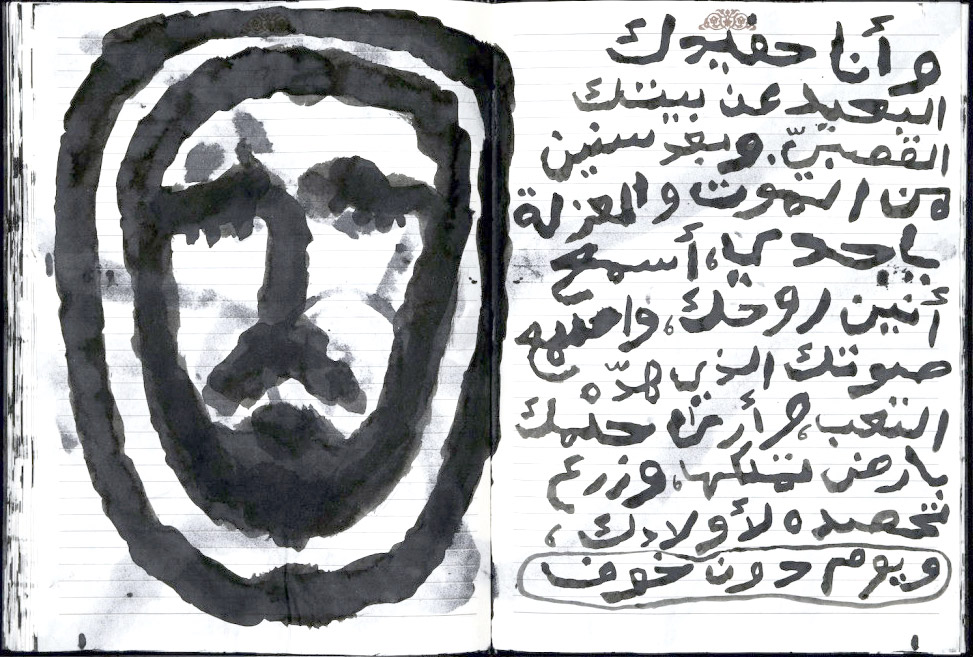 و أنا حفيدك
البعيد عن بيتك
القصيّ، وبعد سنين
من الموت والعزلة
يا جدي، أسمع
أنين روحك، و
صوتك الذي هدّه
التعب، و أرى حلمك
بارض تملكها، وزرع
تحصده لأولادك،
ويوم دون خوف